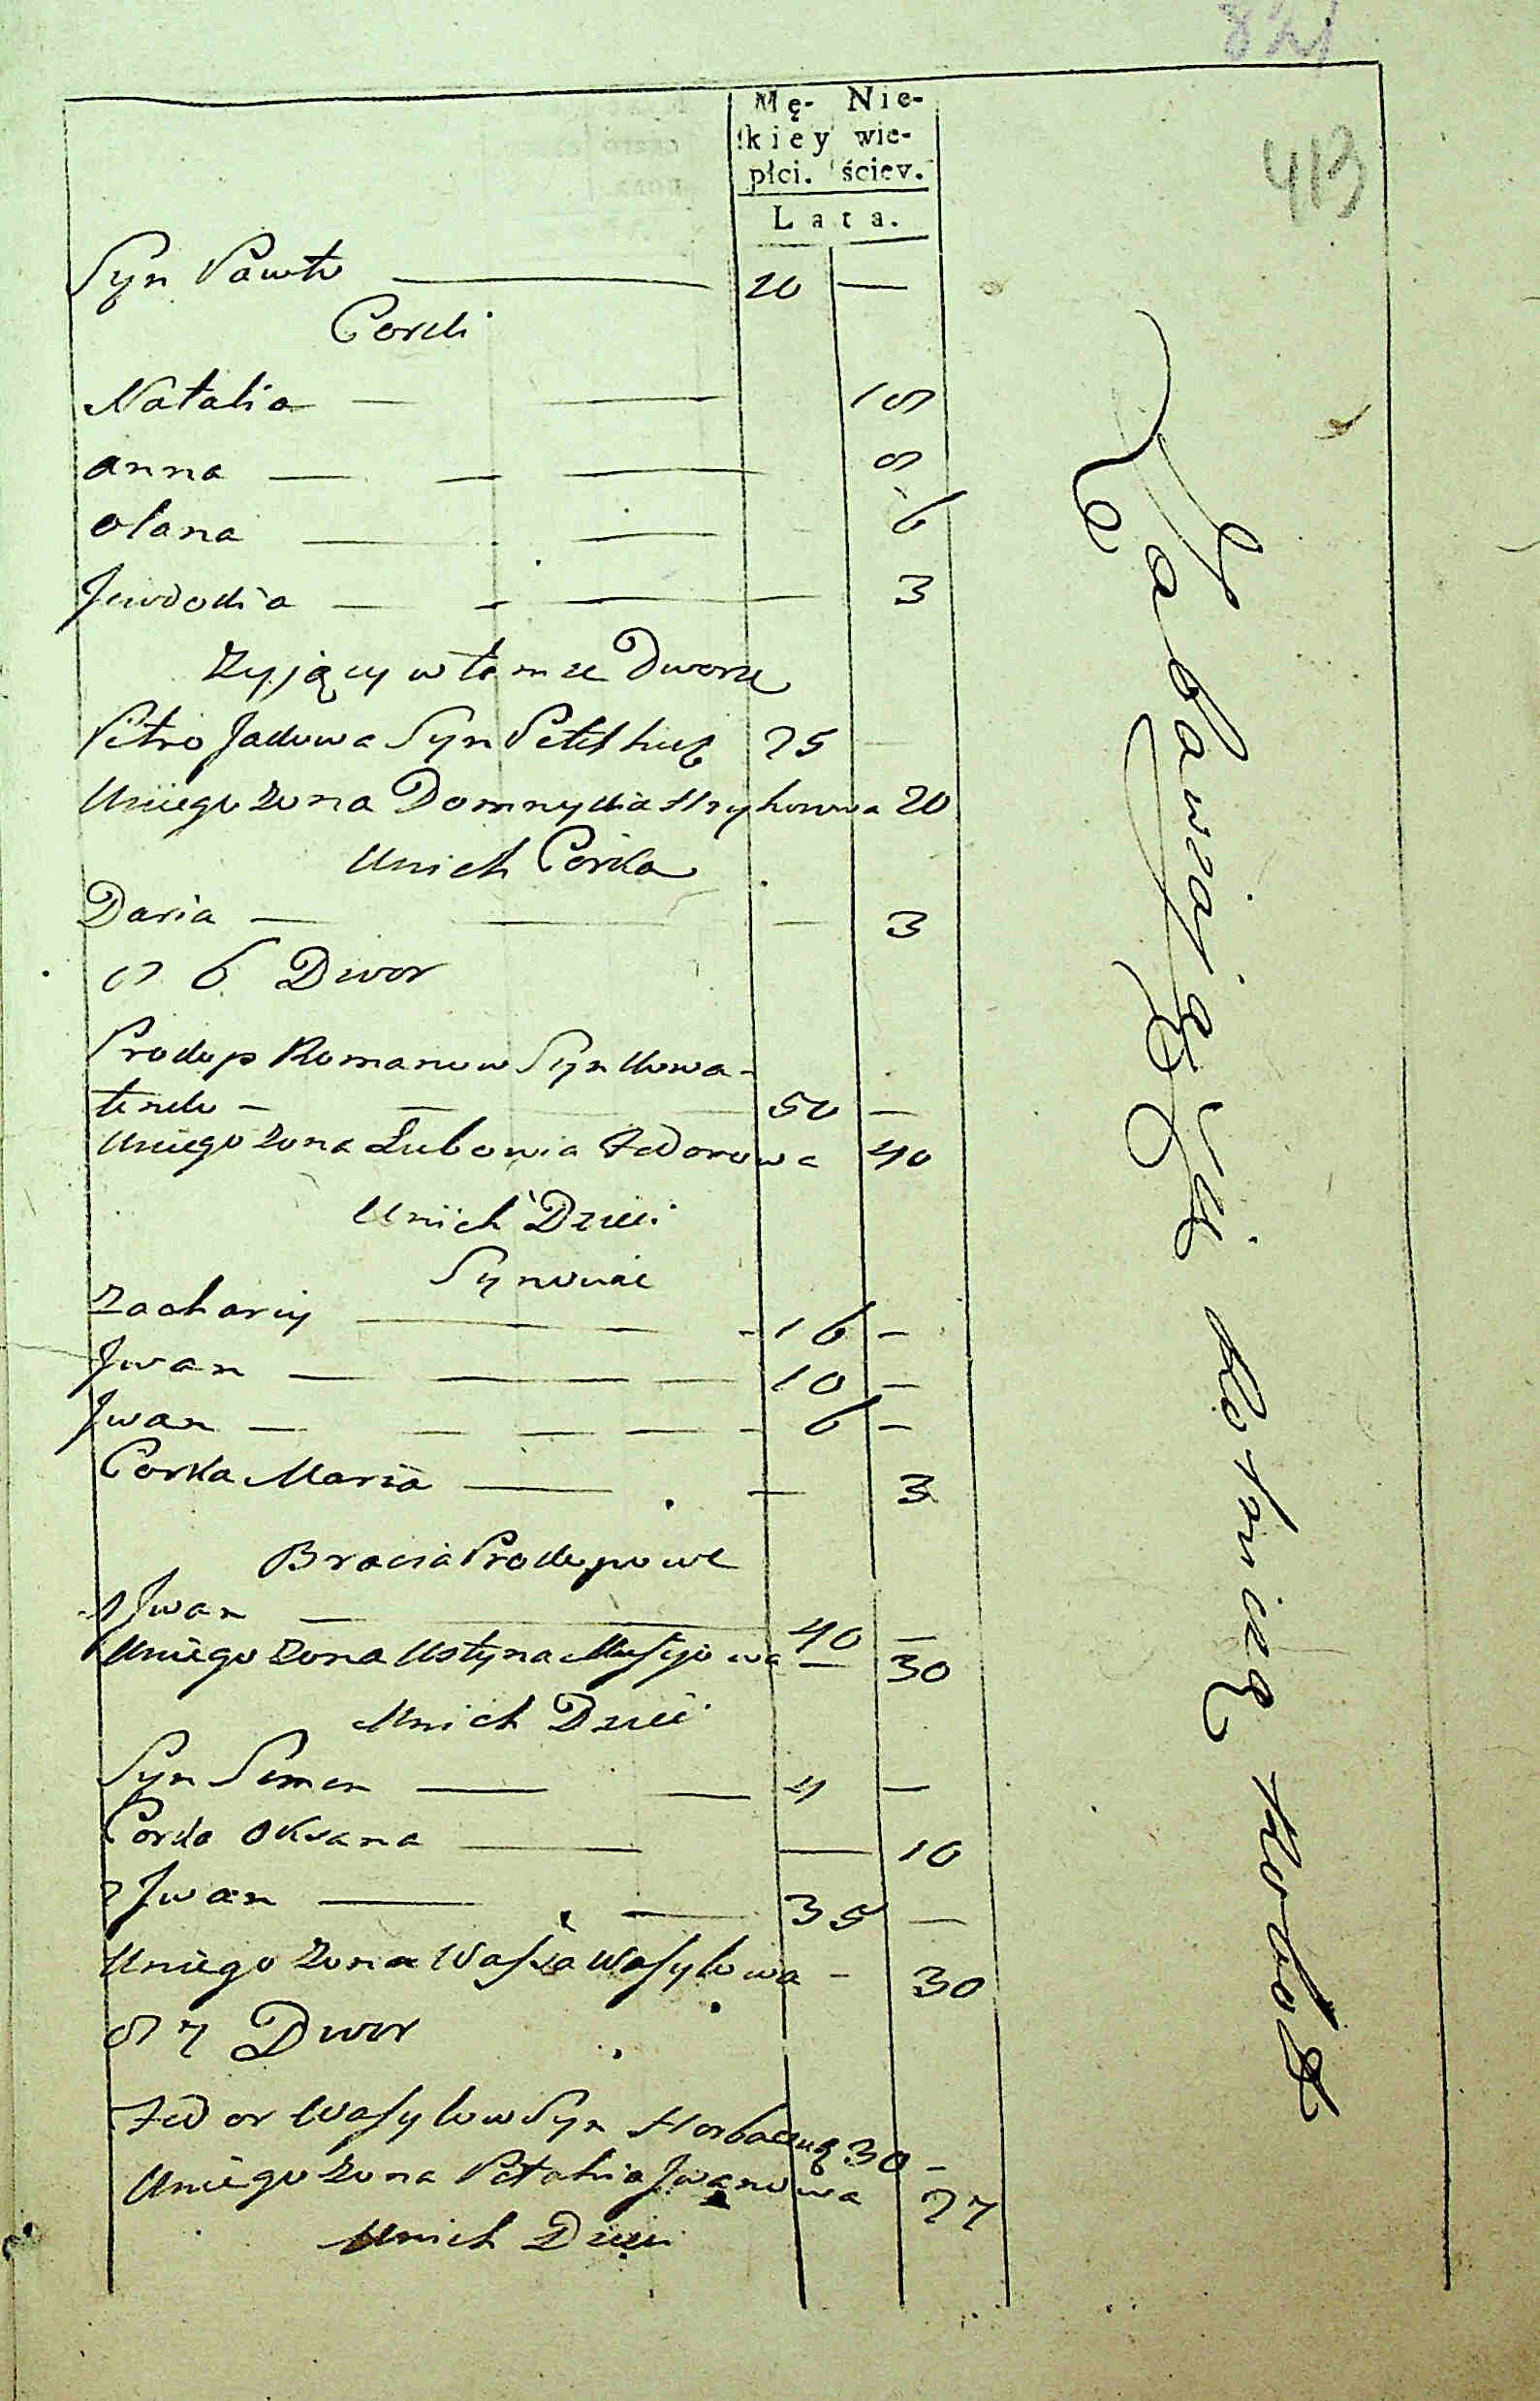 821
413
Mę- Nie-
kiey wie-
płci. ściey.
Lata.
Syn Pawło 20 —
Corki
Natalia — — 19
anna — — — 9
olana — — 6
Jewdokia — - — 3
Zyjący w tem ze Dworze
Petro Jakowa Syn 25 —
Uniego zona Domnykia Hrykowa 20
Unich Corka
Daria — — — 3
6 Dwor
Prokop Romanow Syn Kowa-
lenko — — 50 —
Uniego zona Lubowia Fedorowa 40
Unich Dzieci
Synowie
Zachariy — — - 16 —
Jwan — — — 10 —
Jwan — — — — - 6 —
Corka Maria — — 3
Bracia Prokopowe
1 Jwan — — 40 —
Uniego zona Ustyna — 30
Unich Dzieci
Syn Semen — — 4 —
Corka Oksana — — 10
2 Jwan — — 35 —
Uniego zona Wassa Wasylowa — 30
7 Dwor
Fedor Wasylow Syn Horbaczuk 30 —
Uniego zona Petahia Jwanowa 27
Unich Dzieci
Zabawiaią się rolniczą robotą